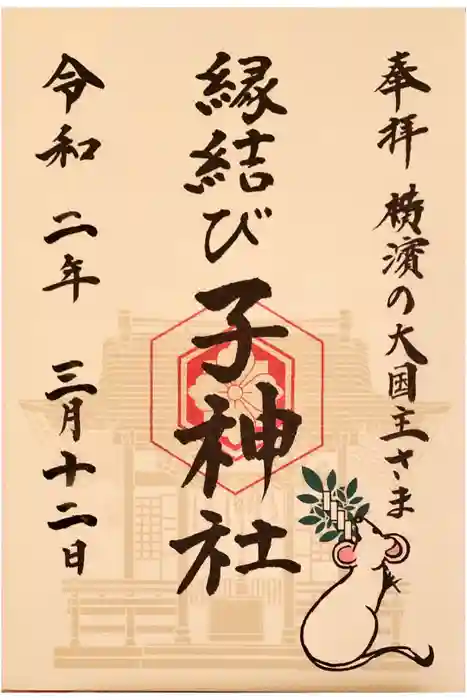 奉拝 横濱の大国主さま
縁結び 子神社
令和 二年 三月十二日